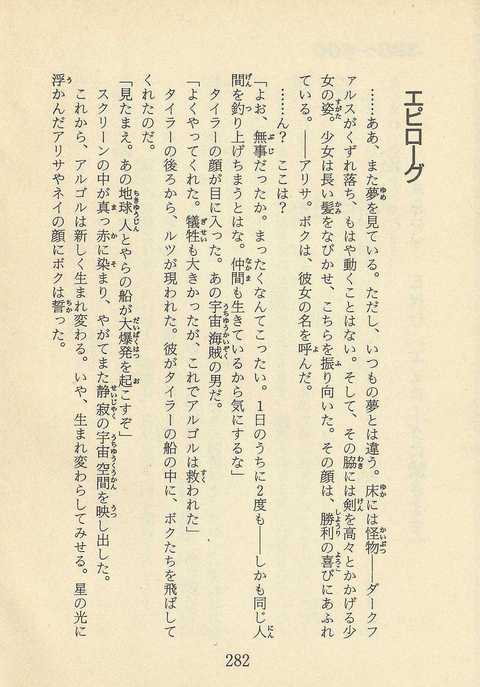 エピローグ
……ああ、また夢を見ている。ただし、いつもの夢とは違う。床には怪物――ダークフ
アルスがくずれ落ち、もはや動くことはない。そして、その脇には剣を高々とかかげる少
女の姿。少女は長い髪をなびかせ、こちらを振り向いた。その顔は、勝利の喜びにあふれ
ている。――アリサ。ボクは、彼女の名を呼んだ。
……ん？　ここは？
「よお、無事だったか。まったくなんてこったい。１日のうちに２度も――しかも同じ人
間を釣り上げちまうとはな。仲間も生きているから気にするな」
タイラーの顔が目に入った。あの宇宙海賊の男だ。
「よくやってくれた。犠牲も大きかったが、これでアルゴルは救われた」
タイラーの後ろから、ルツが現われた。彼がタイラーの船の中に、ボクたちを飛ばして
くれたのだ。
「見たまえ。あの地球人とやらの船が大爆発を起こすぞ」
スクリーンの中が真っ赤に染まり、やがてまた静寂の宇宙空間を映し出した。
これから、アルゴルは新しく生まれ変わる。いや、生まれ変わらしてみせる。星の光に
浮かんだアリサやネイの顔にボクは誓った。
282